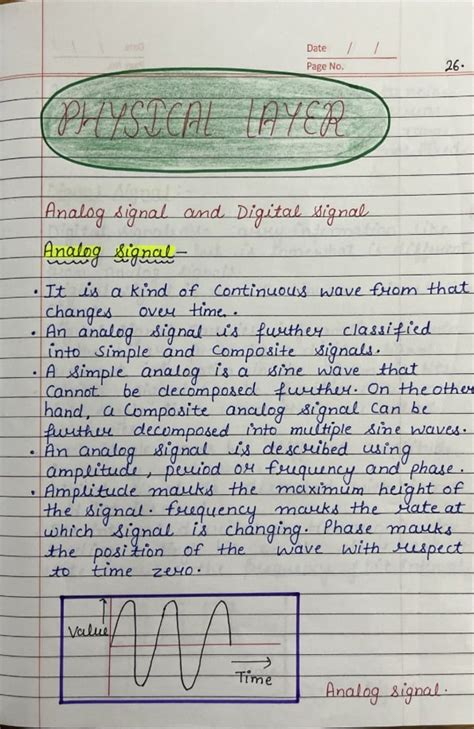 Date / /
Page No. 26.
PHYSICAL LAYER
Analog Signal and Digital Signal
Analog Signal -
• It is a kind of continuous wave from that
changes over time.
• An analog signal is further classified
into Simple and Composite signals.
• A simple analog is a sine wave that
Cannot be decomposed further. On the other
hand, a Composite analog signal can be
further decomposed into multiple sine waves.
• An analog signal is described using
amplitude, period or frequency and phase.
• Amplitude marks the maximum height of
the signal. frequency marks the rate at
which signal is changing. Phase marks
the position of the wave with respect
to time zero.
Value
Time
Analog signal.